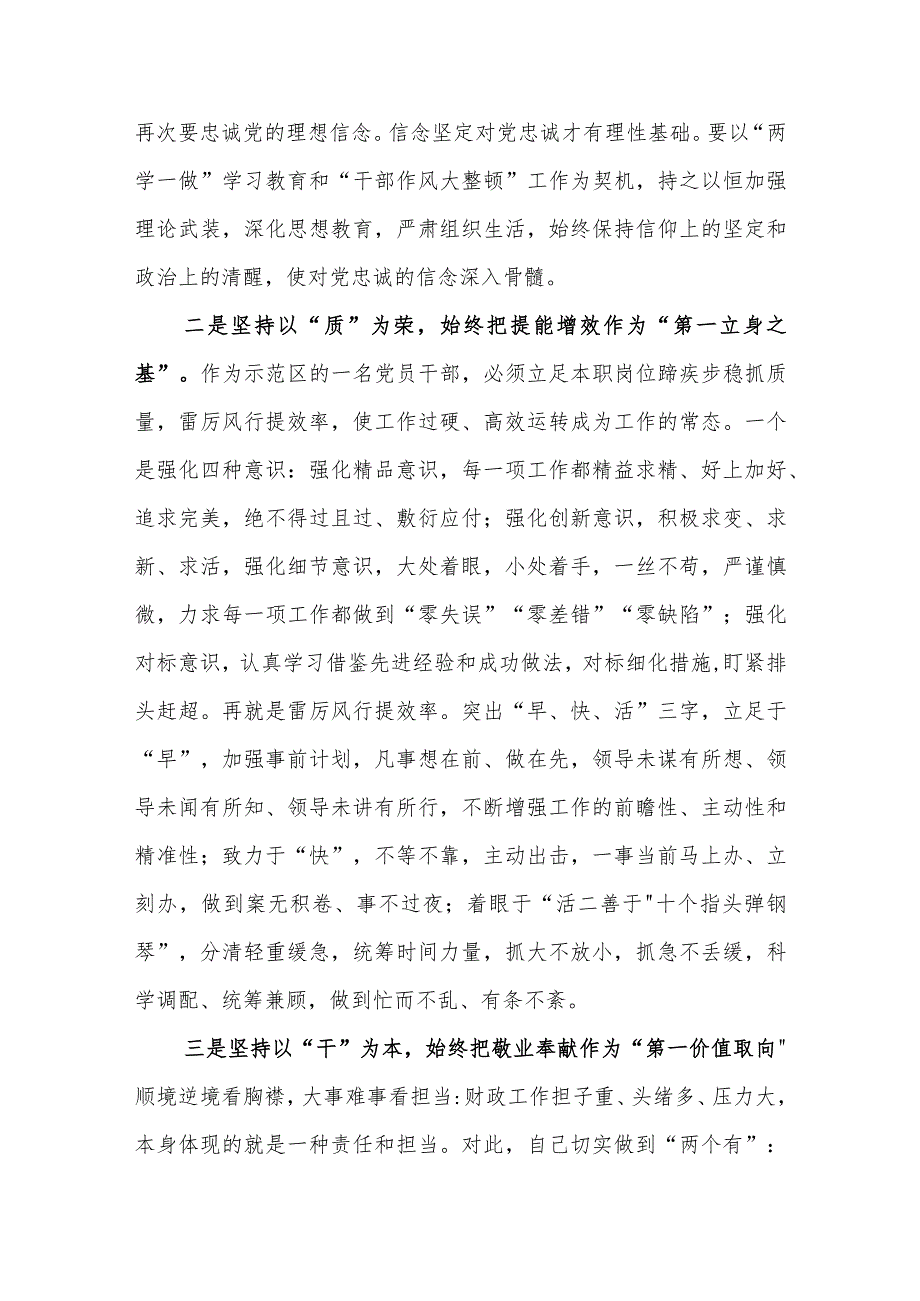 再次要忠诚党的理想信念。信念坚定对党忠诚才有理性基础。要以“两
学一做”学习教育和“干部作风大整顿”工作为契机，持之以恒加强
理论武装，深化思想教育，严肃组织生活，始终保持信仰上的坚定和
政治上的清醒，使对党忠诚的信念深入骨髓。
二是坚持以“质”为荣，始终把提能增效作为“第一立身之
基”。作为示范区的一名党员干部，必须立足本职岗位蹄疾步稳抓质
量，雷厉风行提效率，使工作过硬、高效运转成为工作的常态。一个
是强化四种意识：强化精品意识，每一项工作都精益求精、好上加好、
追求完美，绝不得过且过、敷衍应付；强化创新意识，积极求变、求
新、求活，强化细节意识，大处着眼，小处着手，一丝不苟，严谨慎
微，力求每一项工作都做到“零失误”“零差错”“零缺陷”；强化
对标意识，认真学习借鉴先进经验和成功做法，对标细化措施，盯紧排
头赶超。再就是雷厉风行提效率。突出“早、快、活”三字，立足于
“早”，加强事前计划，凡事想在前、做在先，领导未谋有所想、领
导未闻有所知、领导未讲有所行，不断增强工作的前瞻性、主动性和
精准性；致力于“快”，不等不靠，主动出击，一事当前马上办、立
刻办，做到案无积卷、事不过夜；着眼于“活二善于"十个指头弹钢
琴”，分清轻重缓急，统筹时间力量，抓大不放小，抓急不丢缓，科
学调配、统筹兼顾，做到忙而不乱、有条不紊。
三是坚持以“干”为本，始终把敬业奉献作为“第一价值取向"
顺境逆境看胸襟，大事难事看担当:财政工作担子重、头绪多、压力大，
本身体现的就是一种责任和担当。对此，自己切实做到“两个有”：